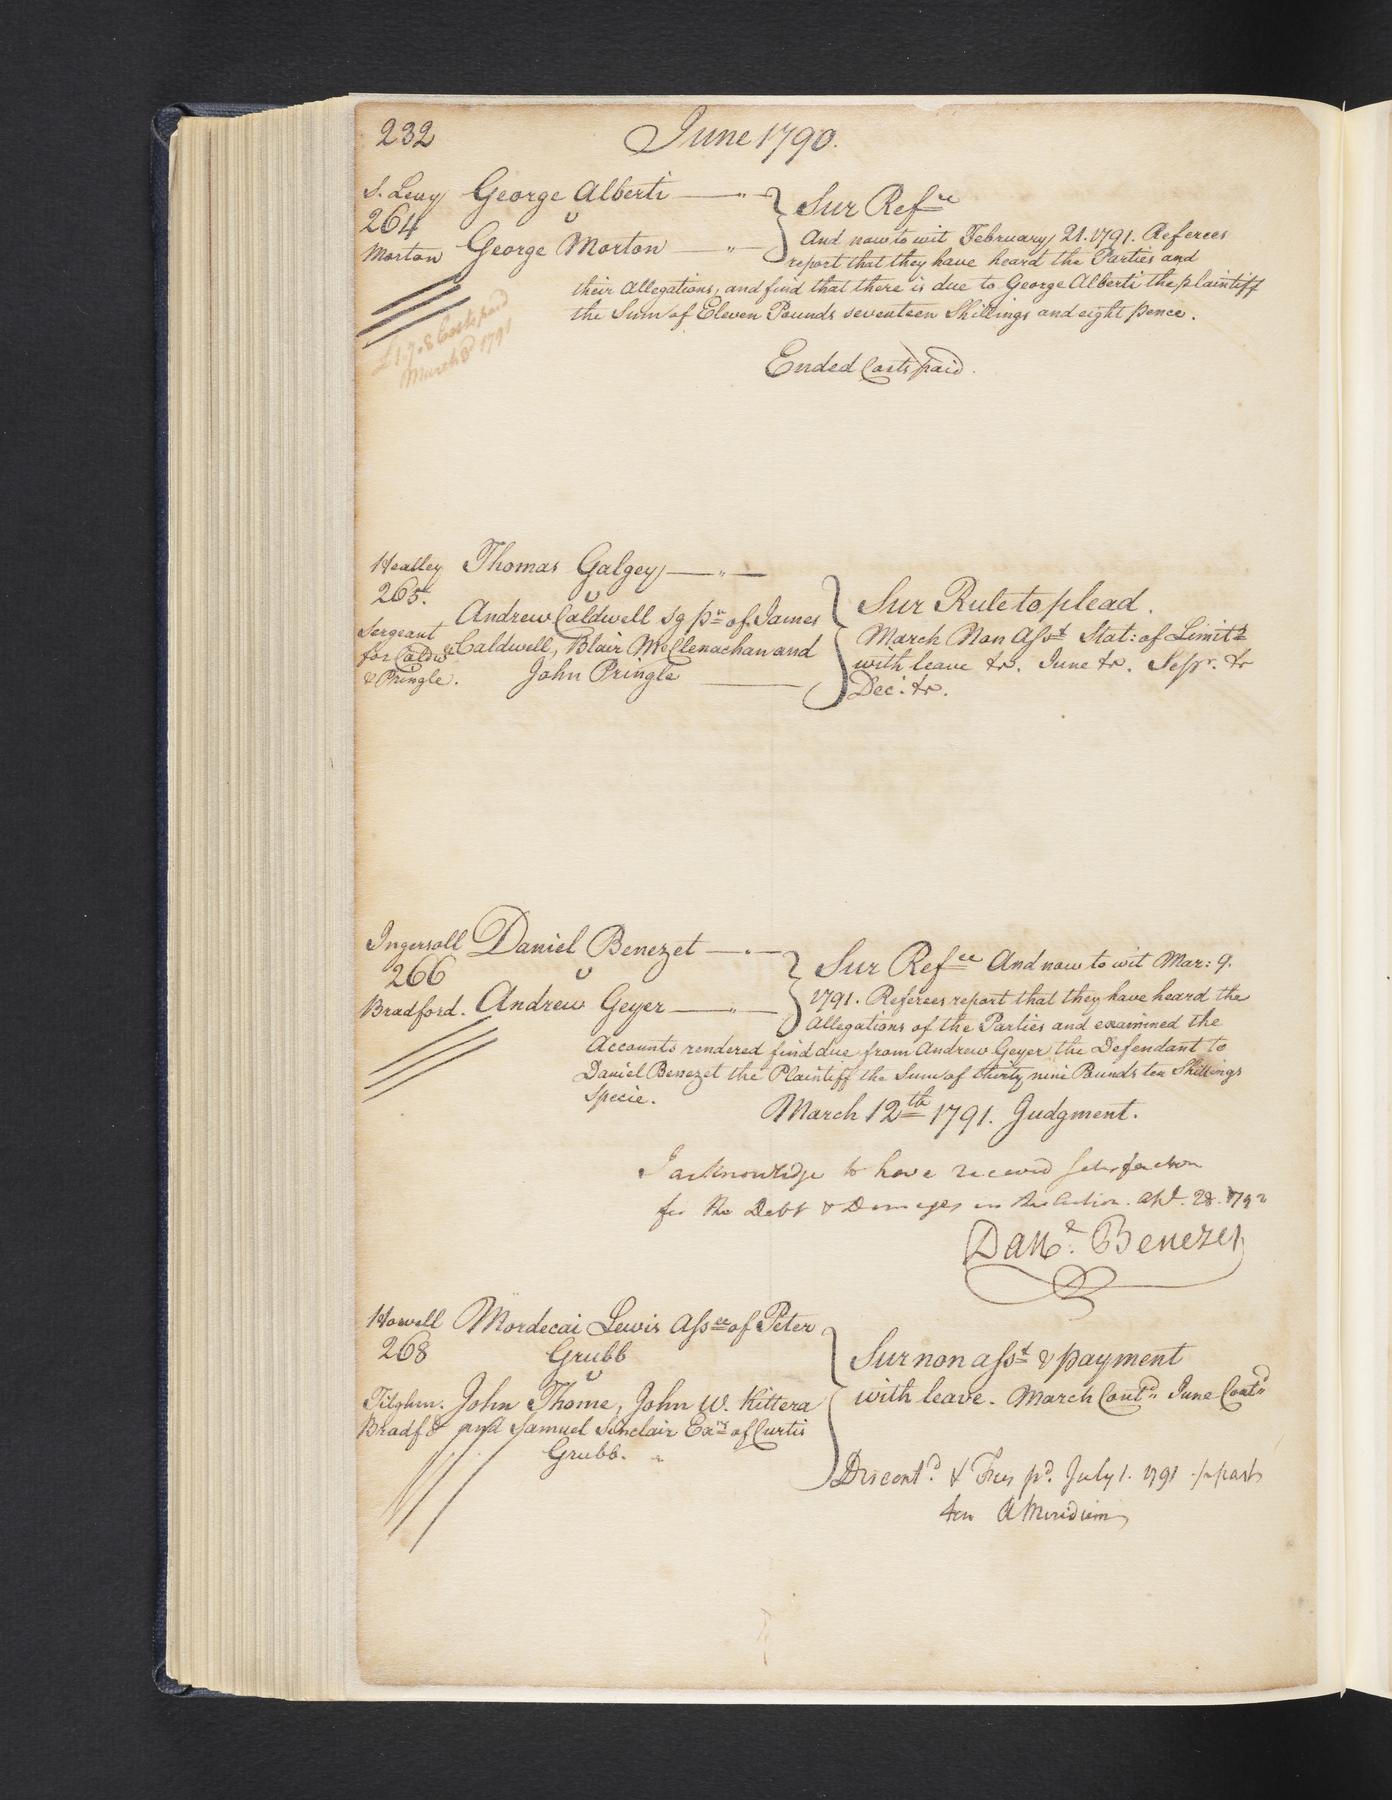 232
June 1790.
S. Levy George Alberti
264 v
Morton George Morton
Sur Refce
And now to wit February 21. 1791. Referees
report that they have heard the Parties and
their Allegations, and find that there is due to George Alberti the plaintiff
the Sum of Eleven Pounds seventeen Shillings and eight pence.
£1.7.8 Costs paid
March 8 1791
Ended Costs paid.
Heatley Thomas Galgey
265. v
Sergeant Andrew Caldwell sg pr of James
for Caldw Caldwell, Blair McClenachan and
& Pringle. John Pringle
Sur Rule to plead.
March Non Asst Stat: of Limits
with leave &c. June &c. Sepr. &c
Dec: &c.
Ingersoll Daniel Benezet
266 v
Bradford. Andrew Geyer
Sur Refce And now to wit Mar: 9.
1791. Referees report that they have heard the
Allegations of the Parties and examined the
Accounts rendered find due from Andrew Geyer the Defendant to
Daniel Benezet the Plaintiff the Sum of thirty nine Pounds ten Shillings
Specie.
March 12th 1791. Judgment.
I acknowledge to have received satisfaction
for the Debt & Damages in this Action. Apl. 28. 1792
Danl. Benezet
Howell Mordecai Lewis Assee of Peter
268 Grubb
v
Tilghm. John Thome, John W. Kittera
Bradfd and Samuel Sinclair Exrs of Curtis
Grubb.
Sur non asst & payment
with leave. March Contd. June Contd
Discontd. & Fees pd. July 1. 1791 ½ past
ten A Meridiem